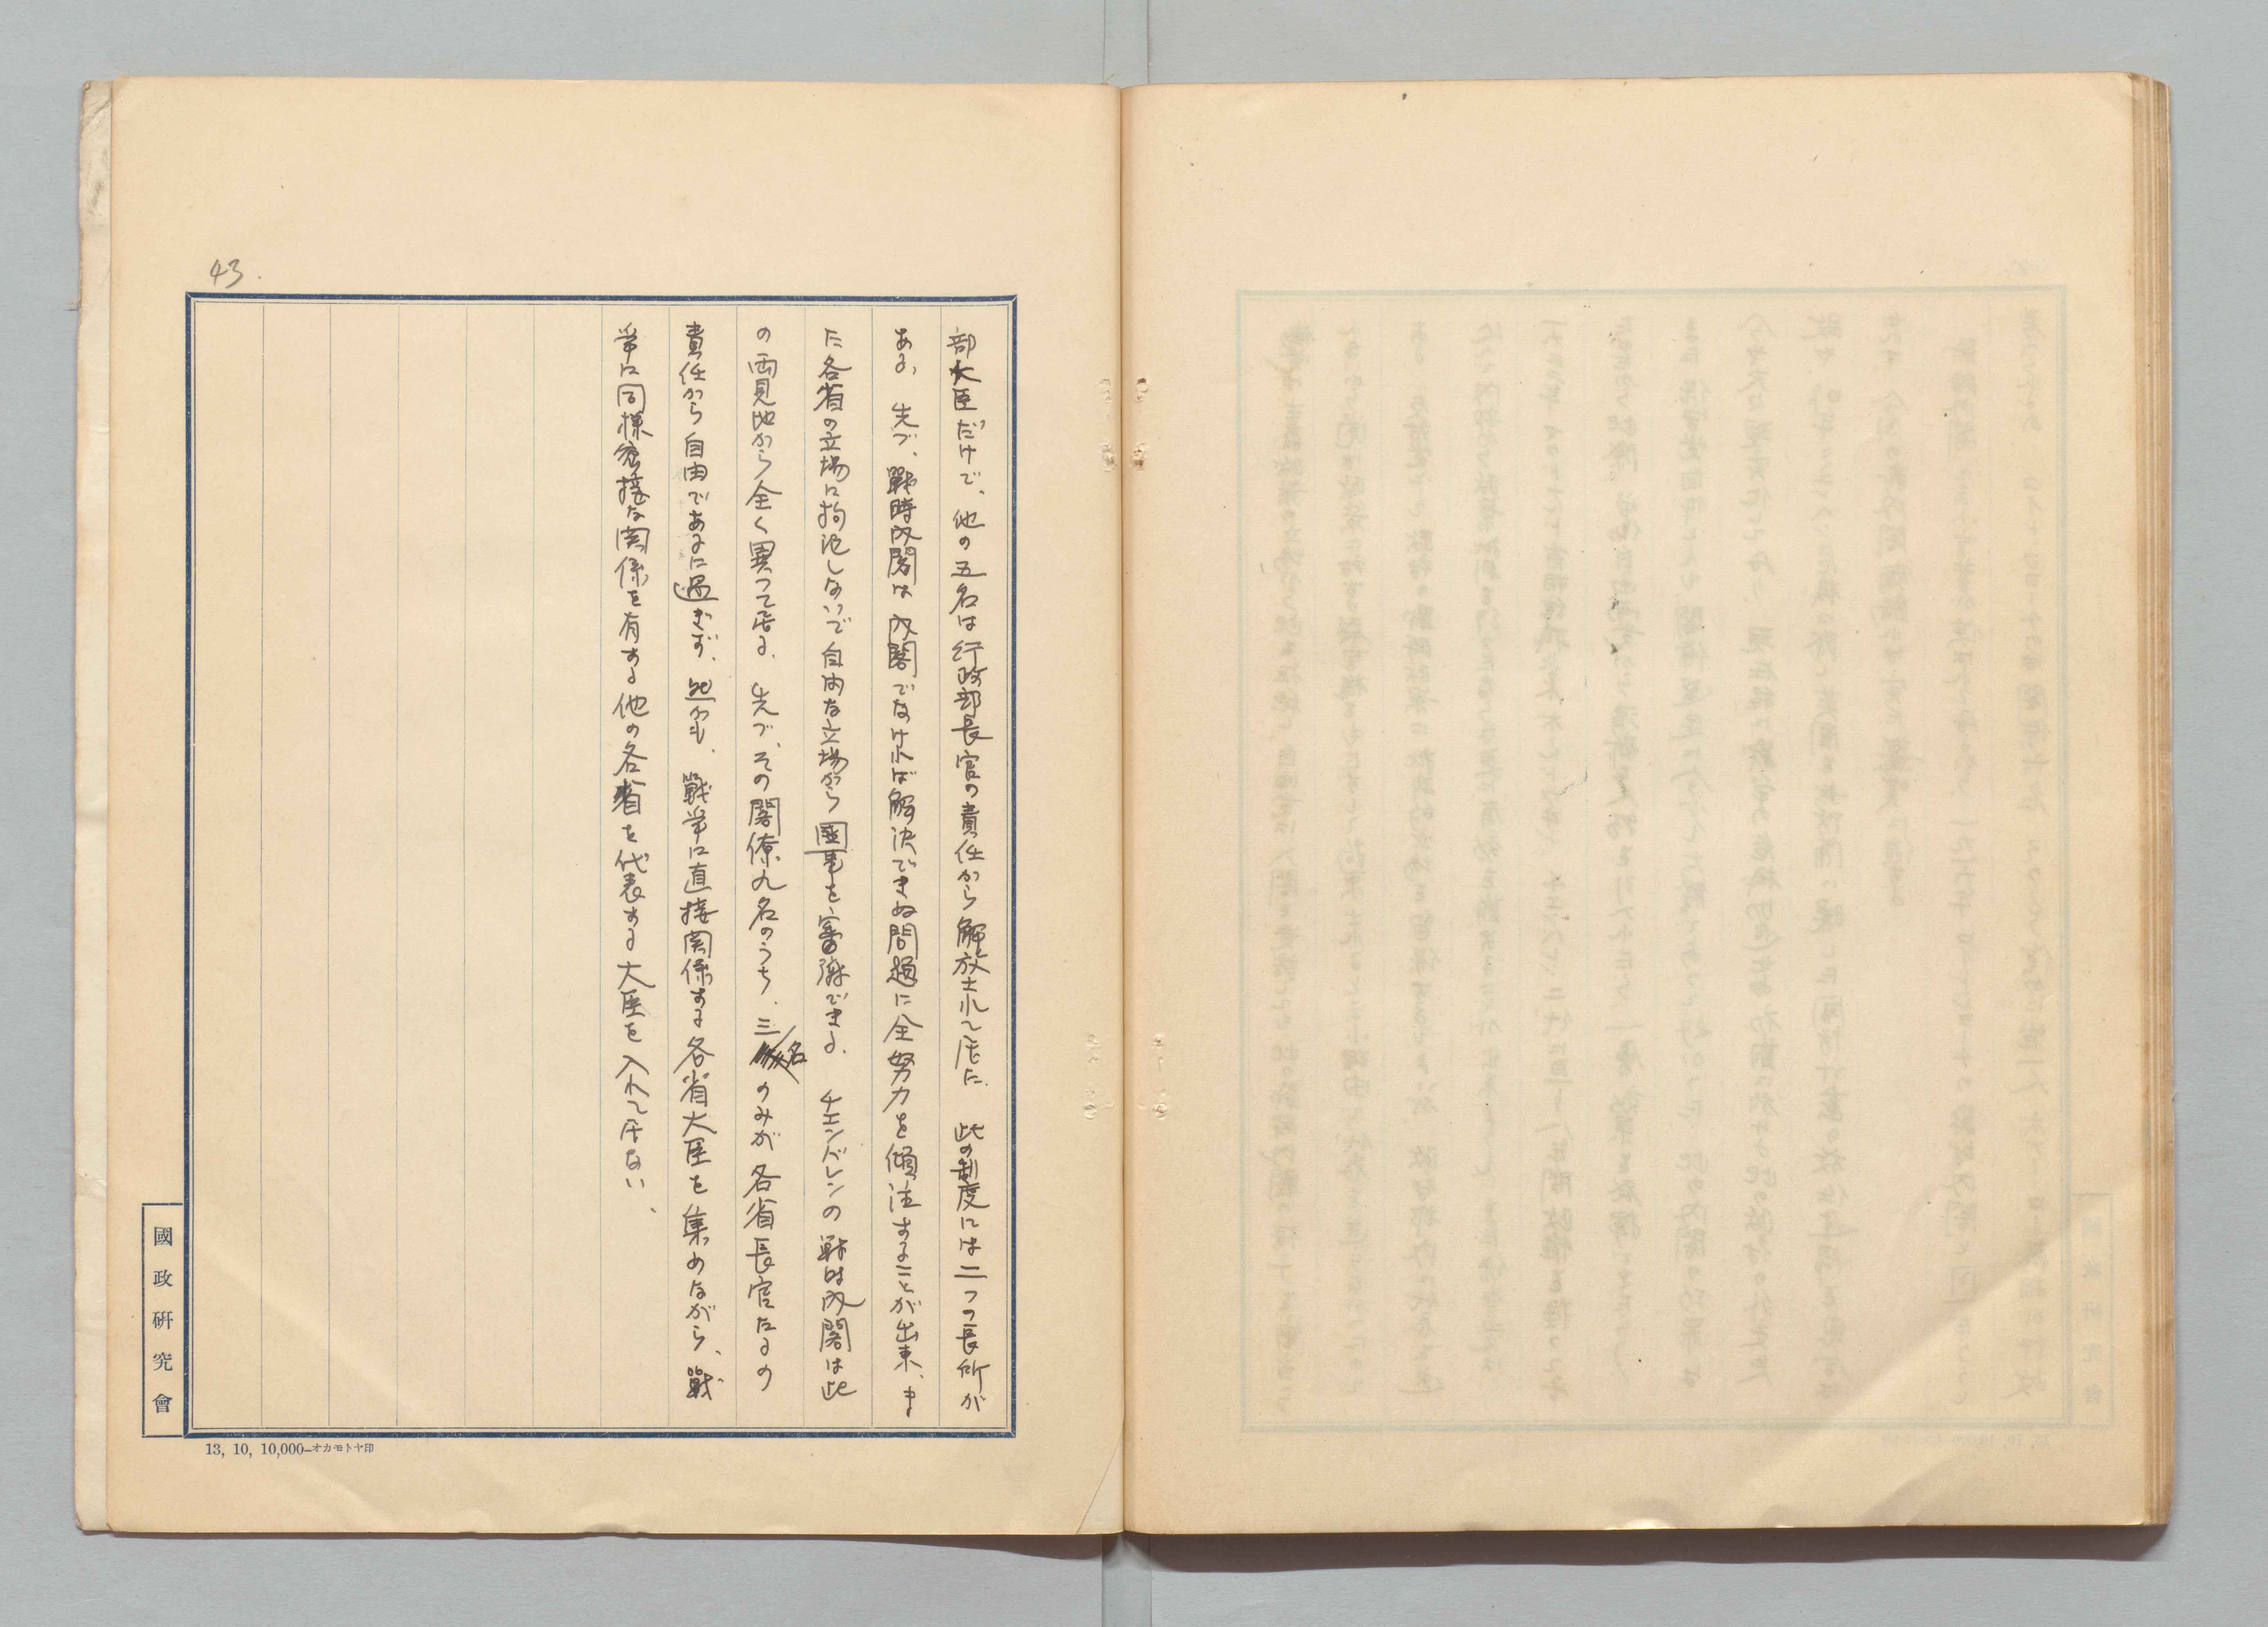 43.
部大臣だけで、他の五名は行政部長官の責任から解放されて居た。此の制度には二つの長所が
ある。先づ、戰時内閣は内閣でなければ解決できぬ問題に全努力を傾注することが出来、ま
た各省の立場に拘泥しないで自由な立場から國事を審議できる。チエンバレンの戰時内閣は此
の両見地から全く異つて居る。先づ、その閣僚九名のうち、三名のみが各省長官たるの
責任から自由であるに過ぎず、然かも、戰争に直接関係する各省大臣を集めながら、戰
争に同様密接な関係を有する他の各省を代表する大臣を入れて居ない、
國政研究會
13, 10, 10,000—オカモトヤ印